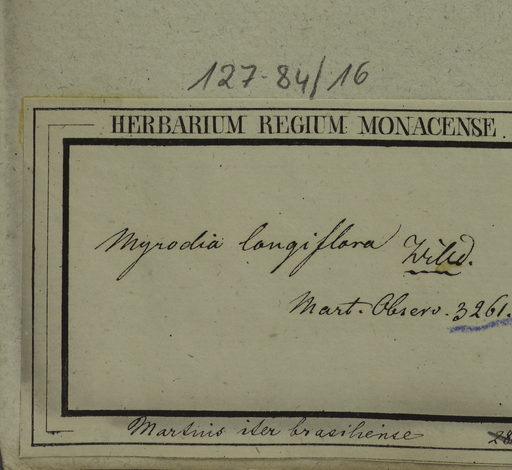 127-84/16
HERBARIUM REGIUM MONACENSE.
Myrodia longiflora Willd.
Mart. Observ. 3261.
Martius iter brasiliense